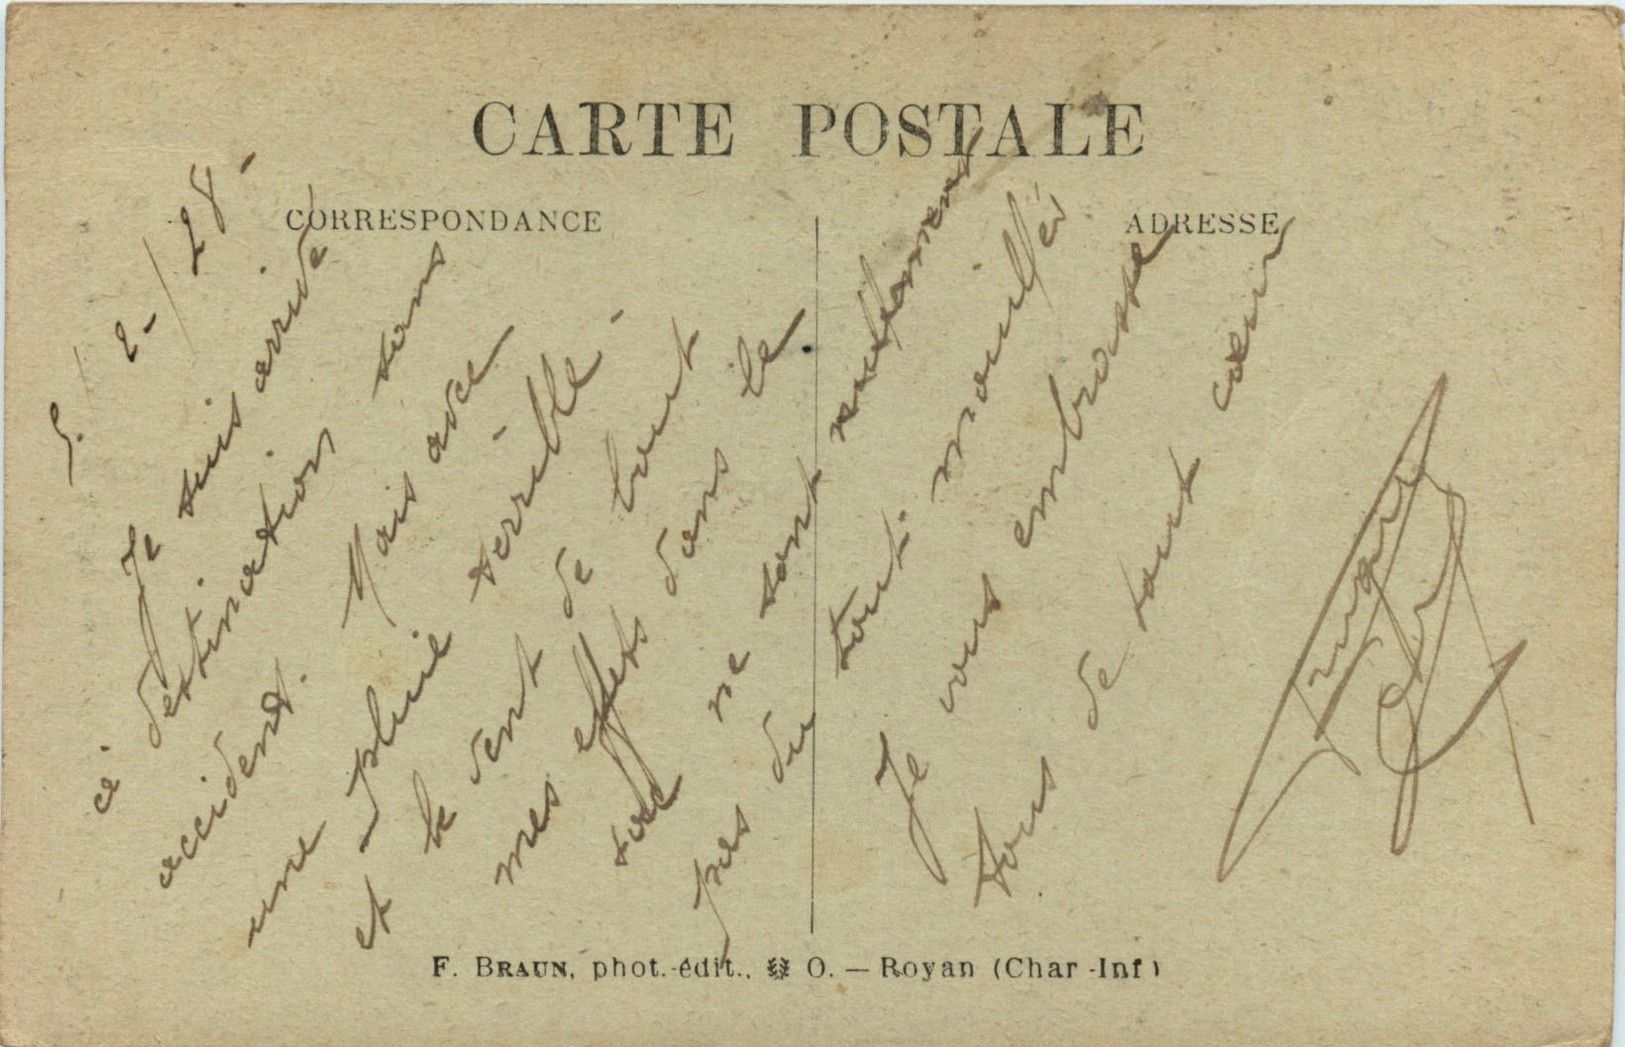 CARTE POSTALE
CORRESPONDANCE
ADRESSE
5/2-/28-
Je suis arrivé
à destination sans
accident. Mais avec
une pluie terrible -
et le vent de bout
mes effets dans le
sac ne sont
pas du tout mouillés
Je vous embrasse
tous de tout cœur
F. BRAUN, phot.-édit., O. — Royan (Char-Inf)